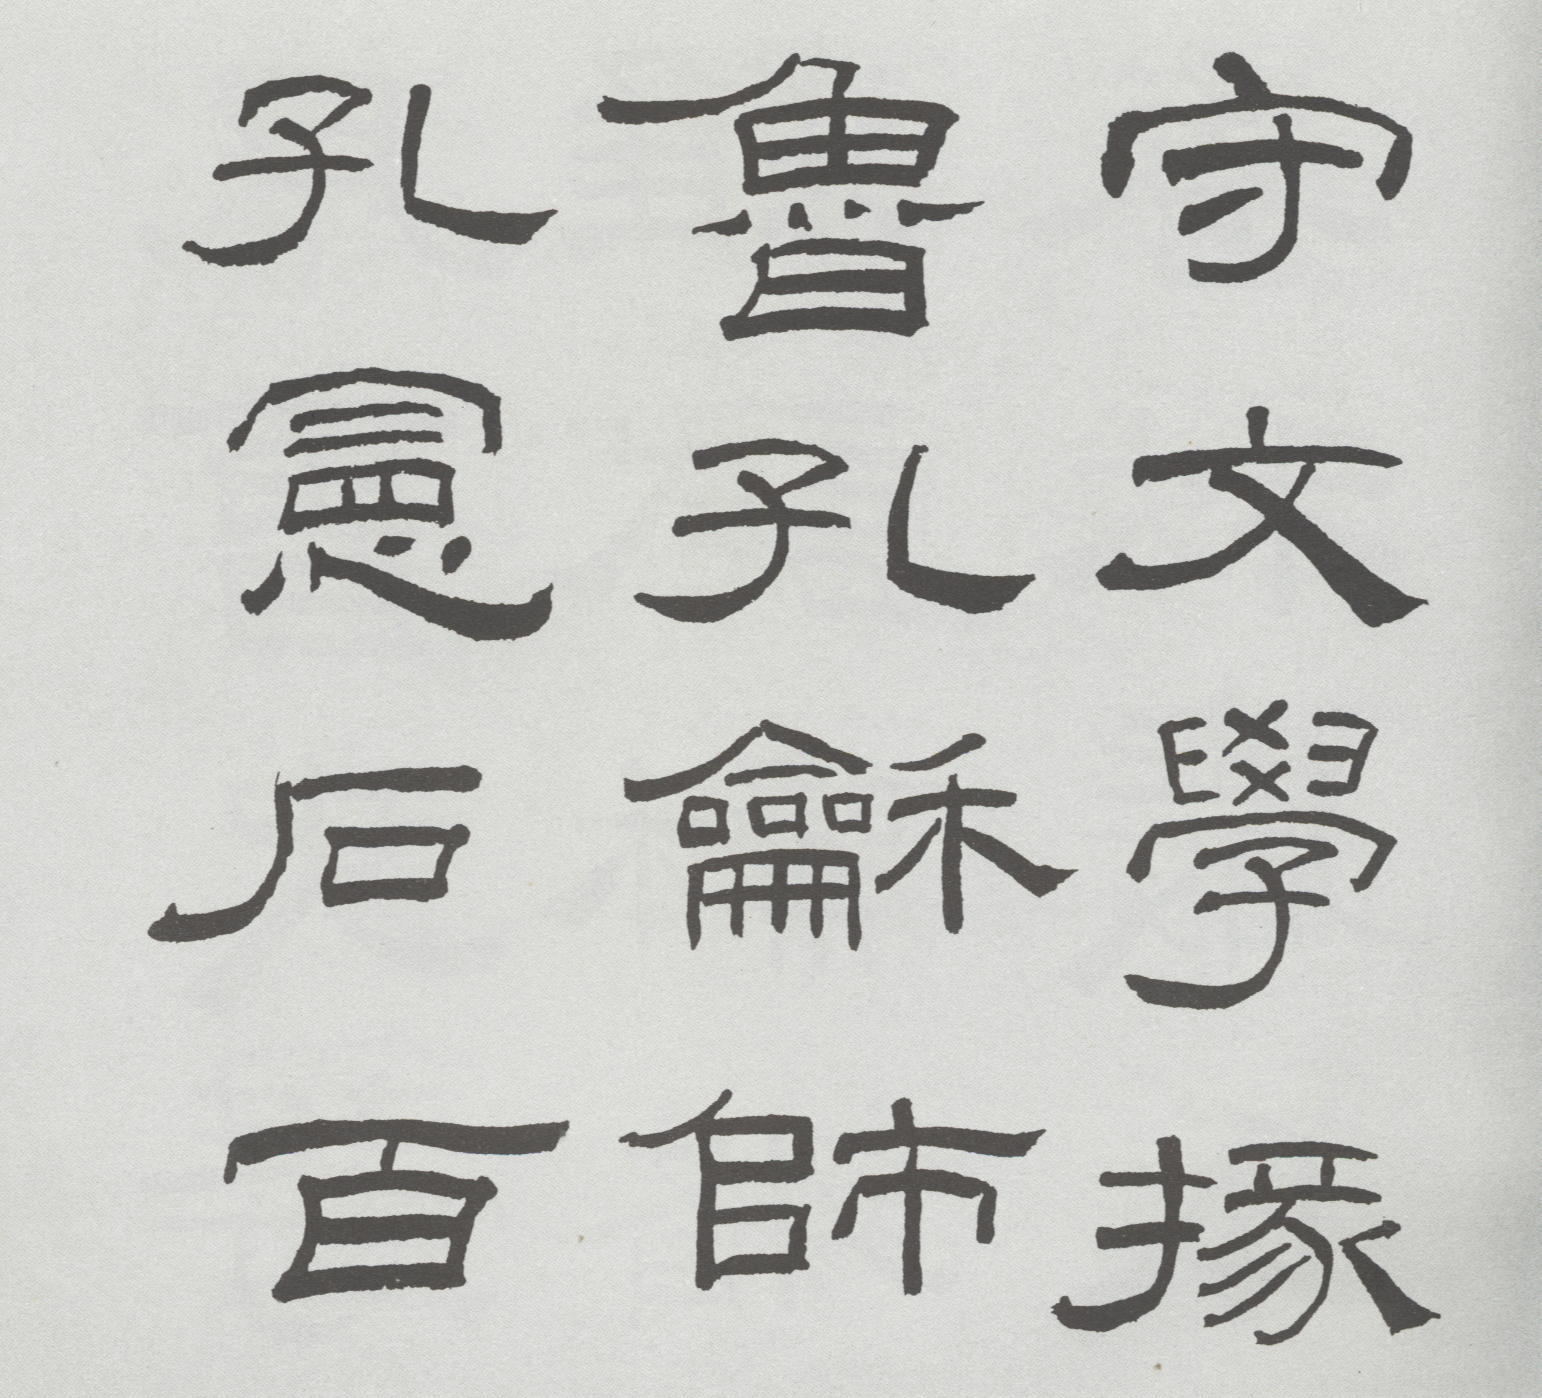 守文學掾
魯孔龢師
孔憲戶百